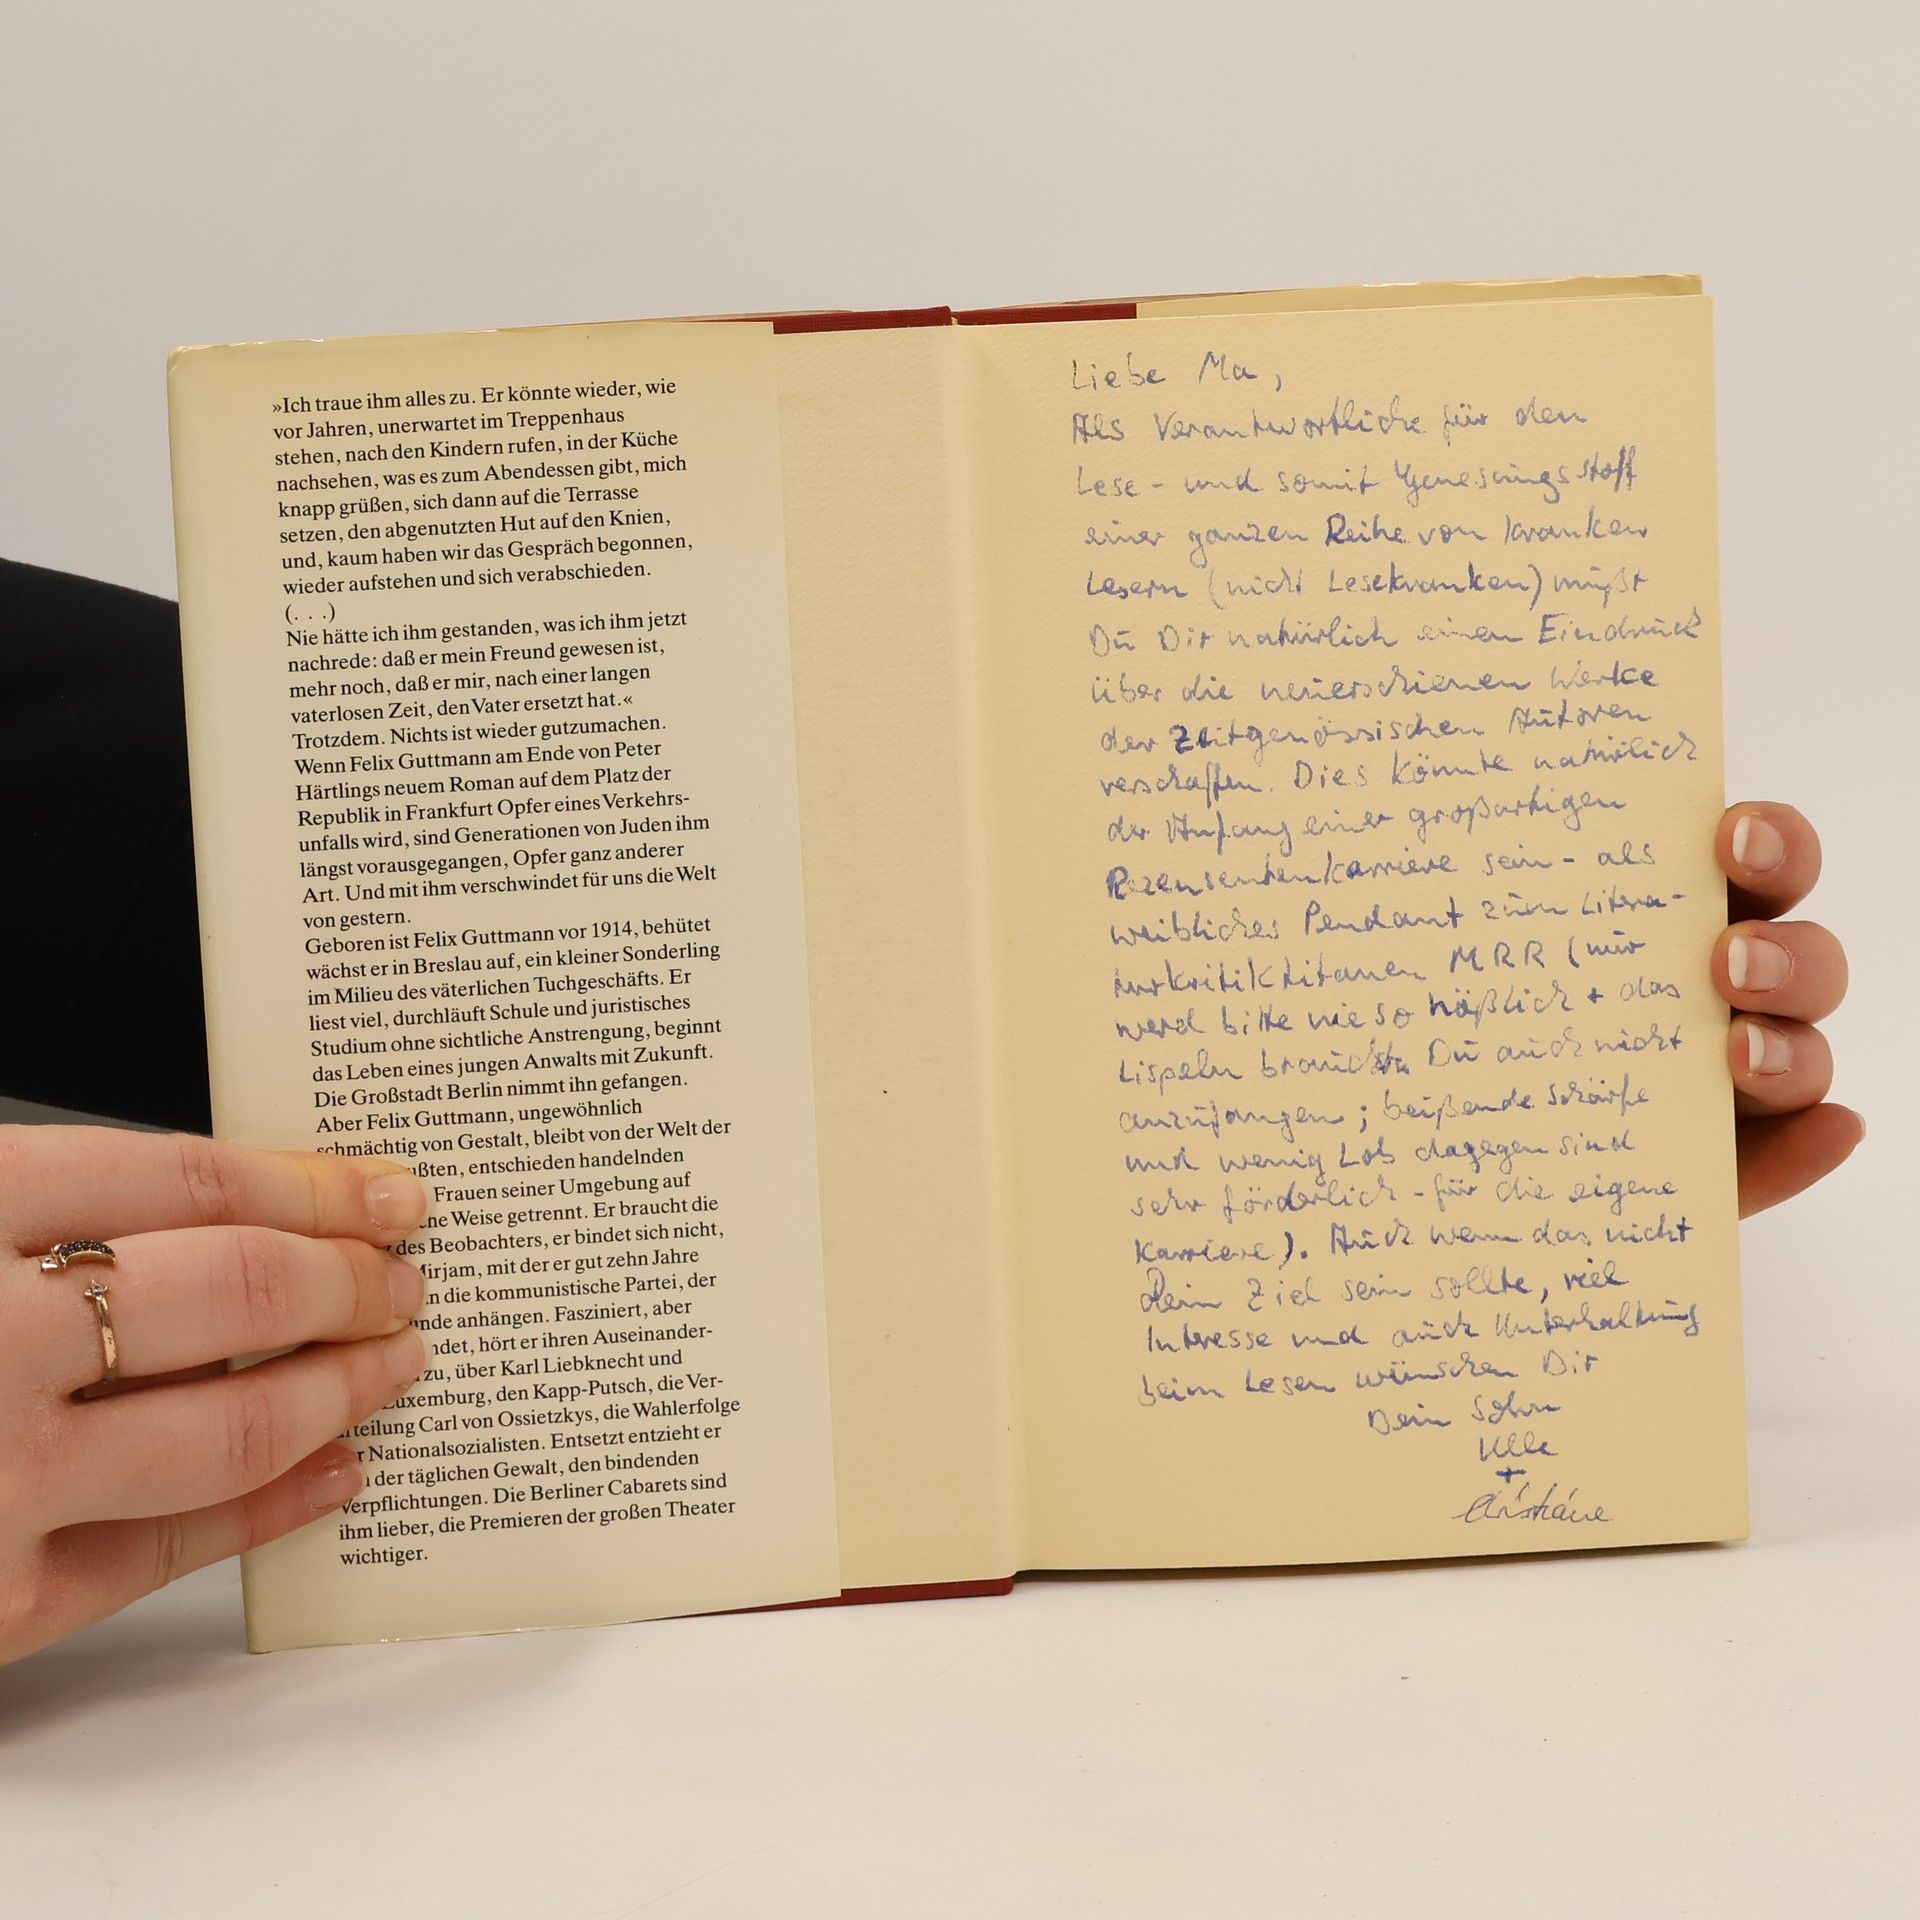 »Ich traue ihm alles zu. Er könnte wieder, wie
vor Jahren, unerwartet im Treppenhaus
stehen, nach den Kindern rufen, in der Küche
nachsehen, was es zum Abendessen gibt, mich
knapp grüßen, sich dann auf die Terrasse
setzen, den abgenutzten Hut auf den Knien,
und, kaum haben wir das Gespräch begonnen,
wieder aufstehen und sich verabschieden.
(. . .)
Nie hätte ich ihm gestanden, was ich ihm jetzt
nachrede: daß er mein Freund gewesen ist,
mehr noch, daß er mir, nach einer langen
vaterlosen Zeit, den Vater ersetzt hat.«
Trotzdem. Nichts ist wieder gutzumachen.
Wenn Felix Guttmann am Ende von Peter
Härtlings neuem Roman auf dem Platz der
Republik in Frankfurt Opfer eines Verkehrs-
unfalls wird, sind Generationen von Juden ihm
längst vorausgegangen, Opfer ganz anderer
Art. Und mit ihm verschwindet für uns die Welt
von gestern.
Geboren ist Felix Guttmann vor 1914, behütet
wächst er in Breslau auf, ein kleiner Sonderling
im Milieu des väterlichen Tuchgeschäfts. Er
liest viel, durchläuft Schule und juristisches
Studium ohne sichtliche Anstrengung, beginnt
das Leben eines jungen Anwalts mit Zukunft.
Die Großstadt Berlin nimmt ihn gefangen.
Aber Felix Guttmann, ungewöhnlich
schmächtig von Gestalt, bleibt von der Welt der
ußten, entschieden handelnden
Frauen seiner Umgebung auf
che Weise getrennt. Er braucht die
des Beobachters, er bindet sich nicht,
Mirjam, mit der er gut zehn Jahre
in die kommunistische Partei, der
unde anhängen. Fasziniert, aber
ndet, hört er ihren Auseinander-
zu, über Karl Liebknecht und
Luxemburg, den Kapp-Putsch, die Ver-
rteilung Carl von Ossietzkys, die Wahlerfolge
r Nationalsozialisten. Entsetzt entzieht er
der täglichen Gewalt, den bindenden
Verpflichtungen. Die Berliner Cabarets sind
ihm lieber, die Premieren der großen Theater
wichtiger.
Liebe Ma,
Als Verantwortliche für den
Lese- und somit Genesungsstoff
einer ganzen Reihe von kranken
Lesern (nicht Lesekranken) mußt
Du Dir natürlich einen Eindruck
über die neuerschienen Werke
der Zeitgenössischen Autoren
verschaffen. Dies könnte natürlich
der Anfang einer großartigen
Rezensentenkarriere sein - als
weibliches Pendant zum Litera-
turkritiktitanen MRR (nur
werd bitte nie so häßlich + das
Lispeln brauchst Du auch nicht
anzufangen; beißende Schärfe
und wenig Lob dagegen sind
sehr förderlich - für die eigene
Karriere). Auch wenn das nicht
Dein Ziel sein sollte, viel
Interesse und auch Unterhaltung
beim Lesen wünschen Dir
Dein Sohn
Ulle
+
Christiane